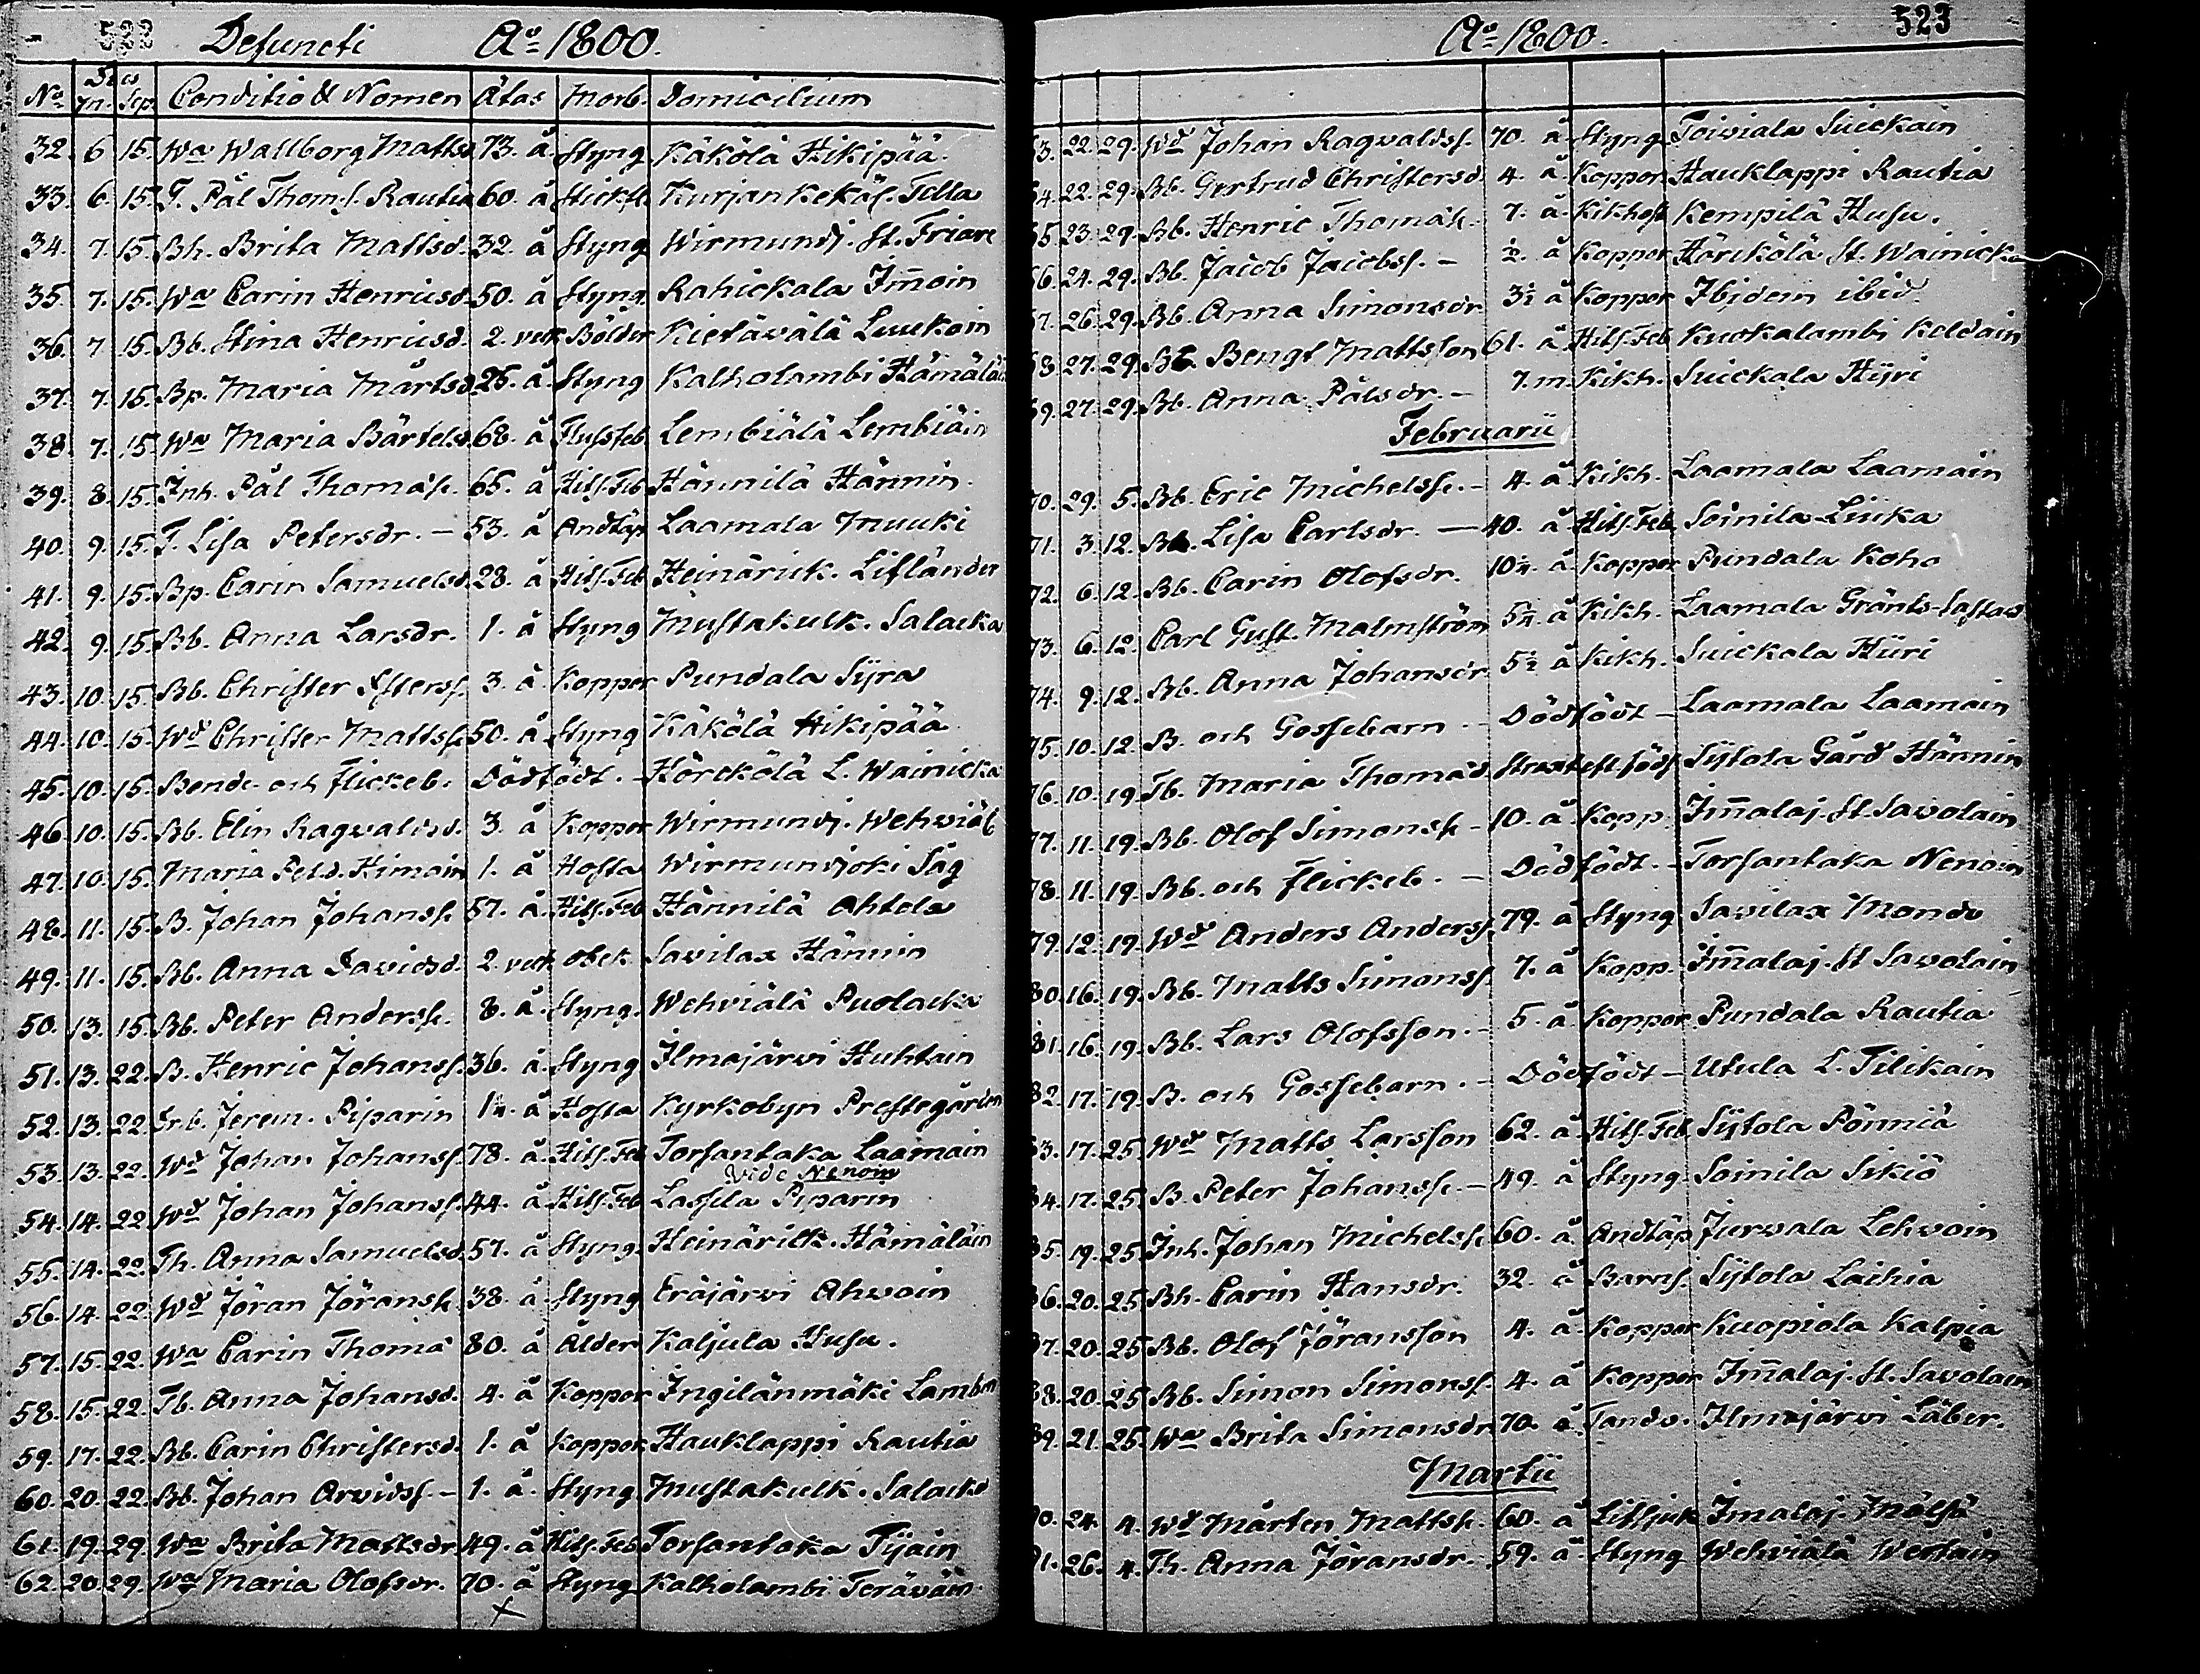 522 Defuncti Aº 1800.
Nº Dies Conditio & Nomen Ätas Morb. Domicilium
Sep.
32. 6 15. Wa Wallborg Matts 73. å Styng Käkölä Hikipää.
33. 6. 15. T. Pål Thoms. Rautia 60. å Kurjan Kekäs. Tilla
34. 7. 15. Bh. Brita Mattsd. 32. å Styng Wirmundj. St. Friare
35. 7. 15. Wa Carin Henricsd. 50. å Styng. Rahickala Im̄oin
36. 7 15. Bb. Stina Henricsd. 2. veck Bölder Kietäwälä Luukoin
37. 7. 15. Bp. Maria Mårtsd. 26. å. Styng Kalholambi Hämäläi
38. 7. 15. Wa Maria Bärtels. 68. å Flussfeb. Lembiälä Lembiäin
39. 8. 15. Inh. Pål Thomäs. 65. å Hits. Feb Hännilä Hännin.
40. 9. 15. T. Lisa Petersdr. – 53. å Andtäp Laamala Muuki
41. 9. 15. Bp. Carin Samuelsd. 28. å Hits. Feb Heinärick. Lifländer
42. 9. 15. Bb. Anna Larsdr. 1. å Styng Mustakulk. Salacka
43. 10. 15. Bb. Christer 3. å. Koppor Pundala Syra
44. 10. 15. Wd Christer Mattss. 50. å Styng Käkölä Hikipää
45. 10. 15. Bonde och Flickeb. Dödfödt. – Hörckölä L. Wainicka
46. 10. 15. Bb. Elin Ragvaldsd. 3. å Koppor Wirmundj. Wehwiäl
47. 10. 15. Maria Petd. Kimoin 1. å Hosta Wirmundjoki Såg
48. 11. 15. B. Johan Johanss. 57. å. Hits. Feb Hännilä Ahtela
49. 11. 15. Bb. Anna Davidsd. 2. veck obek. Savilax Hännin
50. 13. 15. Bb. Peter Anderss. 8. å. Styng. Wehviälä Puolacka
51. 13. 22. B. Henric Johanss. 36. å. Styng Ilmajärwi Huhtain
52. 13. 22. Jerem. Piparin 1½. å Hosta Kyrkobyn Prestegården
53. 13. 22. Wd Johan Johanss. 78. å. Hits. Feb Torsantaka Laamain
vide Nenoin
54. 14. 22 Wd Johan Johanss. 44. å Hits. Feb Lassila Piparin
55. 14. 22. Th. Anna Samuelsd. 57. å Styng. Heinärick. Hämäläin
56. 14. 22. Wd Jöran Jöranss. 38. å Styng Eräjärwi Ahwoin
57. 15. 22. Wa Carin Thomä 80. å Ålder Kaljula Husu.
58. 15. 22. Tb. Anna Johansd. 4. å Koppor Ingilänmäki Lamb
59. 17. 22. Bb. Carin Christersd. 1. å Koppor Hauklappi Rautia
60. 20. 22. Bb. Johan Arvidss. – 1. å. Styng Mustakulk. Salacka
61. 19. 29. Wa Brita Mattsdr. 49. å Hits. Feb Torsantaka Tijäin
62. 20. 29. Wa Maria Olofsdr. 70. å Styng Kalholambi Teräwäin
×
Aº 1800. 523
3. 22. 29. Wd Johan Ragvaldss. 70. å Styng Toiviala Suickain
4. 22. 29. Bb. Gertrud Christersd. 4. å. Koppor Hauklappi Rautia
5. 23. 29. Bb. Henric Thomäs. 7. å. Kikhost Kempilä Husu.
6. 24. 29. Bb. Jacob Jacobss. – ½. å Koppor Hörckölä St. Wainicka
7. 26. 29. Bb. Anna Simonsdr. 3½ å Koppor Ibidem ibid.
8. 27. 29. Bengt Mattsson 61. å Hits. Feb Kuokalambi Koldain
9. 27. 29. Bb. Anna Pålsdr. – 7. m. Kikh. Suickala Hyri
Februarii
70. 29. 5. Bb. Eric Michelss. – 4. å Kikh. Laamala Laamain
71. 3. 12. Lisa Carlsdr. – 40. å Hits. Feb Soinila Liuka
72. 6. 12. Bb. Carin Olofsdr. 10½. å. Koppor Pundala Koho
73. 6. 12. Carl Gust. Malmström 5½. å Kikh. Laamala Gränts-
74. 9. 12. Bb. Anna Johansdr. 5½ å Kikh. Suickala Hüri
75. 10. 12. B. och Gossebarn. – Dödfödt – Laamala Laamain
76. 10. 19. Tb. Maria Thomäd. Sijtola Gård Hännin
77. 11. 19. Bb. Olof Simonss – 10. å Kopp. Im̄alaj. St. Savolain
78. 11. 19. Bb. och Flickeb. – Dödfödt. – Torsantaka Nenoin
79. 12. 19. Wd Anders Anderss. 79. å Styng Savilax Mondo
80. 16. 19. Bb. Matts Simonss. 7. å Kopp. Im̄alaj. St Savolain
81. 16. 19. Bb. Lars Olofsson. – 5. å. Koppor Pundala Rautia
82. 17. 19. B. och Gossebarn. – Dödfödt – Utula L. Tilikain
3. 17. 25. Wd Matts Larsson 62. å. Hits. Feb Sijtola Pönniä
4. 17. 25. B. Peter Johanss. – 49. å Styng. Soinila Sikiö
5. 19. 25. Inh. Johan Michelss. 60. å. Andtäp Jurvala Lehvoin
6. 20. 25. Bh. Carin Hansdr. 32. å Barns. Sijtola Laihia
7. 20. 25. Bb. Olof Jöransson 4. å. Koppor Kuopiola Kalpia
8. 20. 25. Bb. Simon Simonss. 4. å Koppor Im̄alaj. St. Savolain
9. 21. 25. Wa Brita Simonsdr. 70. å. Tandv. Ilmajärwi Läber.
Martii
0. 24. 4. Wd Mårten Mattss. 60. å Imalaj. Mälsö
1. 26. 4. Th. Anna Jöransdr. 59. å Styng Wehviälä Wertain